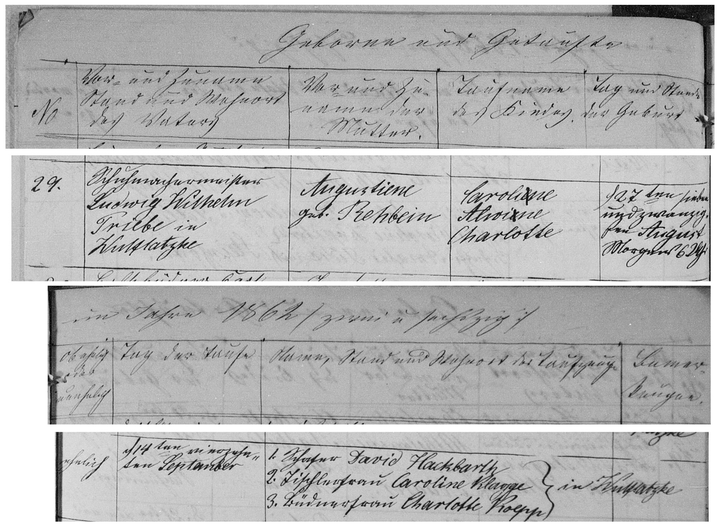 Geborne und Getaufte
No
Vor- und Zuname
Stand und Wohnort
des Vaters
Vor und Zu
name der
Mutter.
Taufname
des Kindes.
Tag und Stunde
der Geburt
29.
Schuhmachermeister
Ludwig Wilhelm
Triebe in
Wutzlatzke
Augustiene
geb. Rehbein
Caroline
Alwine
Charlotte
d 27 ten sieben
und zwanzig
sten August
Morgens 6 Uhr
im Jahre 1862 / zwei u sechszig /
ob ehelich
oder
unehelich
Tag der Taufe
Name, Stand und Wohnort der Taufzeugen
Bemer
kungen.
ehelich
d 14 ten vierzehn-
ten September
1. Schäfer David Hackbarth
2. Tischlerfrau Caroline Klagge
3. Büdnerfrau Charlotte Roepp
in Wutzlatzke